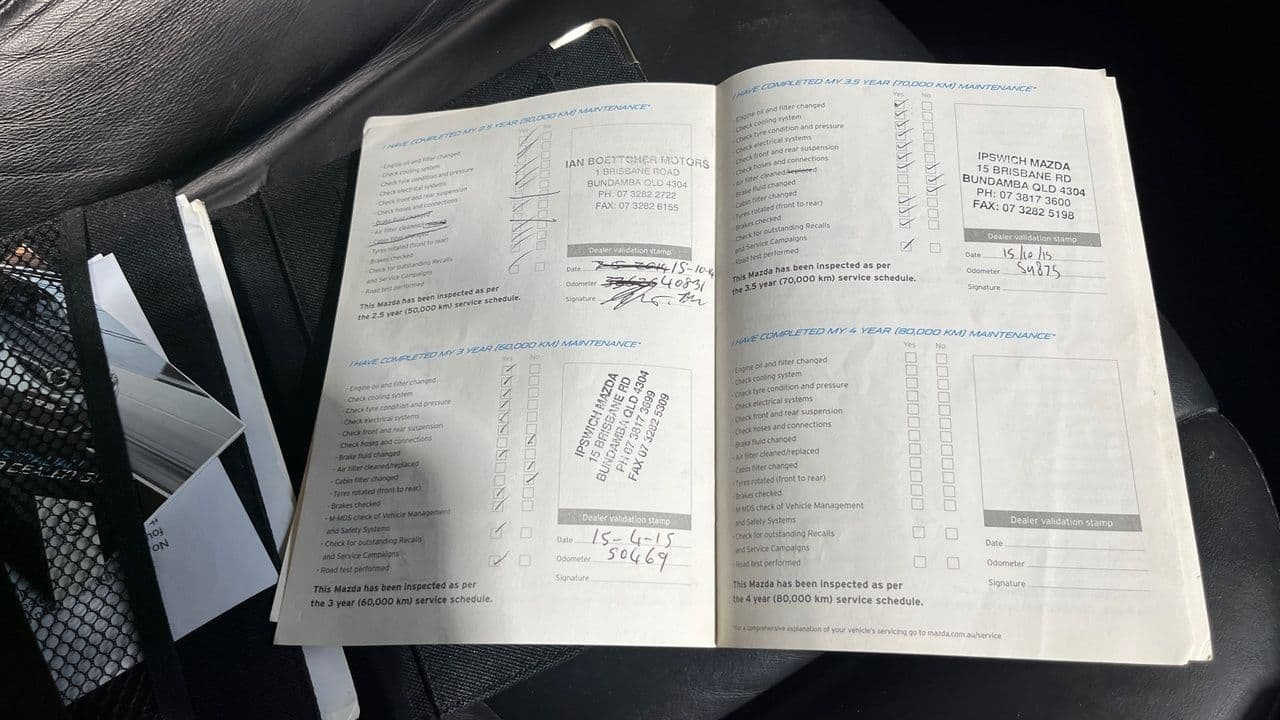 I HAVE COMPLETED MY 2.5 YEAR (50,000 KM) MAINTENANCE*
Yes
- Engine oil and filter changed
- Check cooling system
- Check tyre condition and pressure
- Check electrical systems
- Check front and rear suspension
- Check hoses and connections
- Brake fluid changed
- Air filter cleaned/replaced
- Cabin filter changed
- Tyres rotated (front to rear)
- Brakes checked
- Check for outstanding Recalls
and Service Campaigns
- Road test performed
This Mazda has been inspected as per
the 2.5 year (50,000 km) service schedule.
IAN BOETTCHER MOTORS
1 BRISBANE ROAD
BUNDAMBA QLD 4304
PH: 07 3282 2722
FAX: 07 3282 6155
Dealer validation stamp
Date 15-10-
Odometer 40831
Signature
I HAVE COMPLETED MY 3 YEAR (60,000 KM) MAINTENANCE*
Yes No
- Engine oil and filter changed
- Check cooling system
- Check tyre condition and pressure
- Check electrical systems
- Check front and rear suspension
- Check hoses and connections
- Brake fluid changed
- Air filter cleaned/replaced
- Cabin filter changed
- Tyres rotated (front to rear)
- Brakes checked
- M-MDS check of Vehicle Management
and Safety Systems
- Check for outstanding Recalls
and Service Campaigns
- Road test performed
This Mazda has been inspected as per
the 3 year (60,000 km) service schedule.
IPSWICH MAZDA
15 BRISBANE RD
BUNDAMBA QLD 4304
PH: 07 3817 3699
FAX 07 3282 5309
Dealer validation stamp
Date 15-4-15
Odometer 50469
Signature
I HAVE COMPLETED MY 3.5 YEAR (70,000 KM) MAINTENANCE*
Yes No
- Engine oil and filter changed
- Check cooling system
- Check tyre condition and pressure
- Check electrical systems
- Check front and rear suspension
- Check hoses and connections
- Air filter cleaned/replaced
- Brake fluid changed
- Cabin filter changed
- Tyres rotated (front to rear)
- Brakes checked
- Check for outstanding Recalls
and Service Campaigns
- Road test performed
This Mazda has been inspected as per
the 3.5 year (70,000 km) service schedule.
IPSWICH MAZDA
15 BRISBANE RD
BUNDAMBA QLD 4304
PH: 07 3817 3600
FAX: 07 3282 5198
Dealer validation stamp
Date 15/10/15
Odometer 54875
Signature
I HAVE COMPLETED MY 4 YEAR (80,000 KM) MAINTENANCE*
Yes No
- Engine oil and filter changed
- Check cooling system
- Check tyre condition and pressure
- Check electrical systems
- Check front and rear suspension
- Check hoses and connections
- Brake fluid changed
- Air filter cleaned/replaced
- Cabin filter changed
- Tyres rotated (front to rear)
- Brakes checked
M-MDS check of Vehicle Management
and Safety Systems
- Check for outstanding Recalls
and Service Campaigns
- Road test performed
This Mazda has been inspected as per
the 4 year (80,000 km) service schedule.
Dealer validation stamp
Date
Odometer
Signature
*For a comprehensive explanation of your vehicle's servicing go to mazda.com.au/service